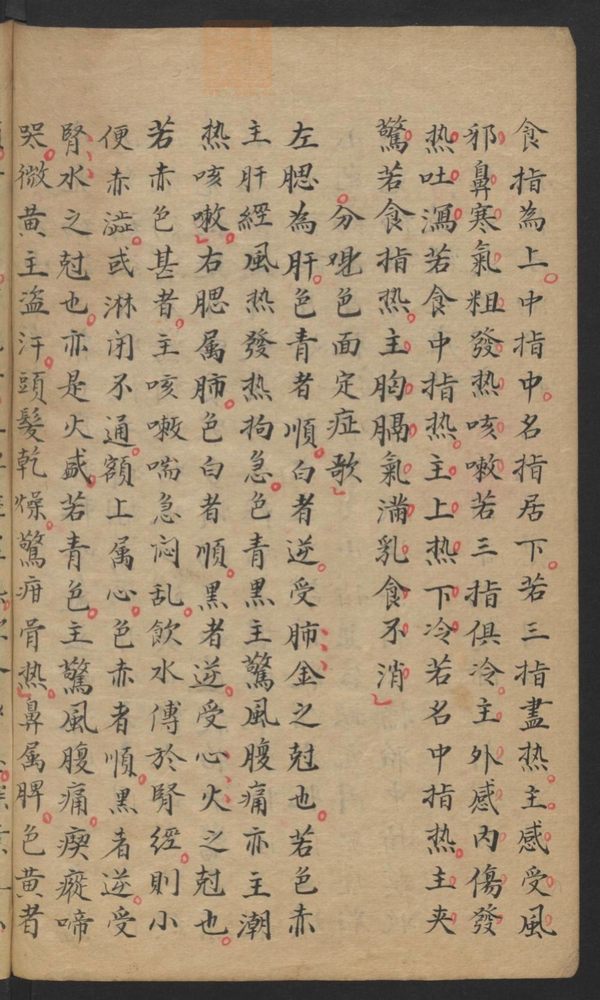 食指為上中指中名指居下若三指盡热主感受風
邪鼻寒氣粗發热咳嗽若三指俱冷主外感內傷發
热吐瀉若食中指热主上热下冷若名中指热主夹
驚若食指热主胸膈氣滿乳食不消
分哯色面定症歌
左腮為肝色青者順白者逆受肺金之尅也若色赤
主肝經風热發热拘急色青黑主驚風腹痛亦主潮
热咳嗽右腮属肺色白者順黑者逆受心火之尅也
若赤色甚者主咳嗽喘急闷乱飲水傳於腎經則小
便赤澁或淋闭不通額上属心色赤者順黑者逆受
腎水之尅也亦是火盛若青色主驚風腹痛瘈瘲啼
哭微黄主盗汗頭髮乾燥驚疳骨热鼻属脾色黄者